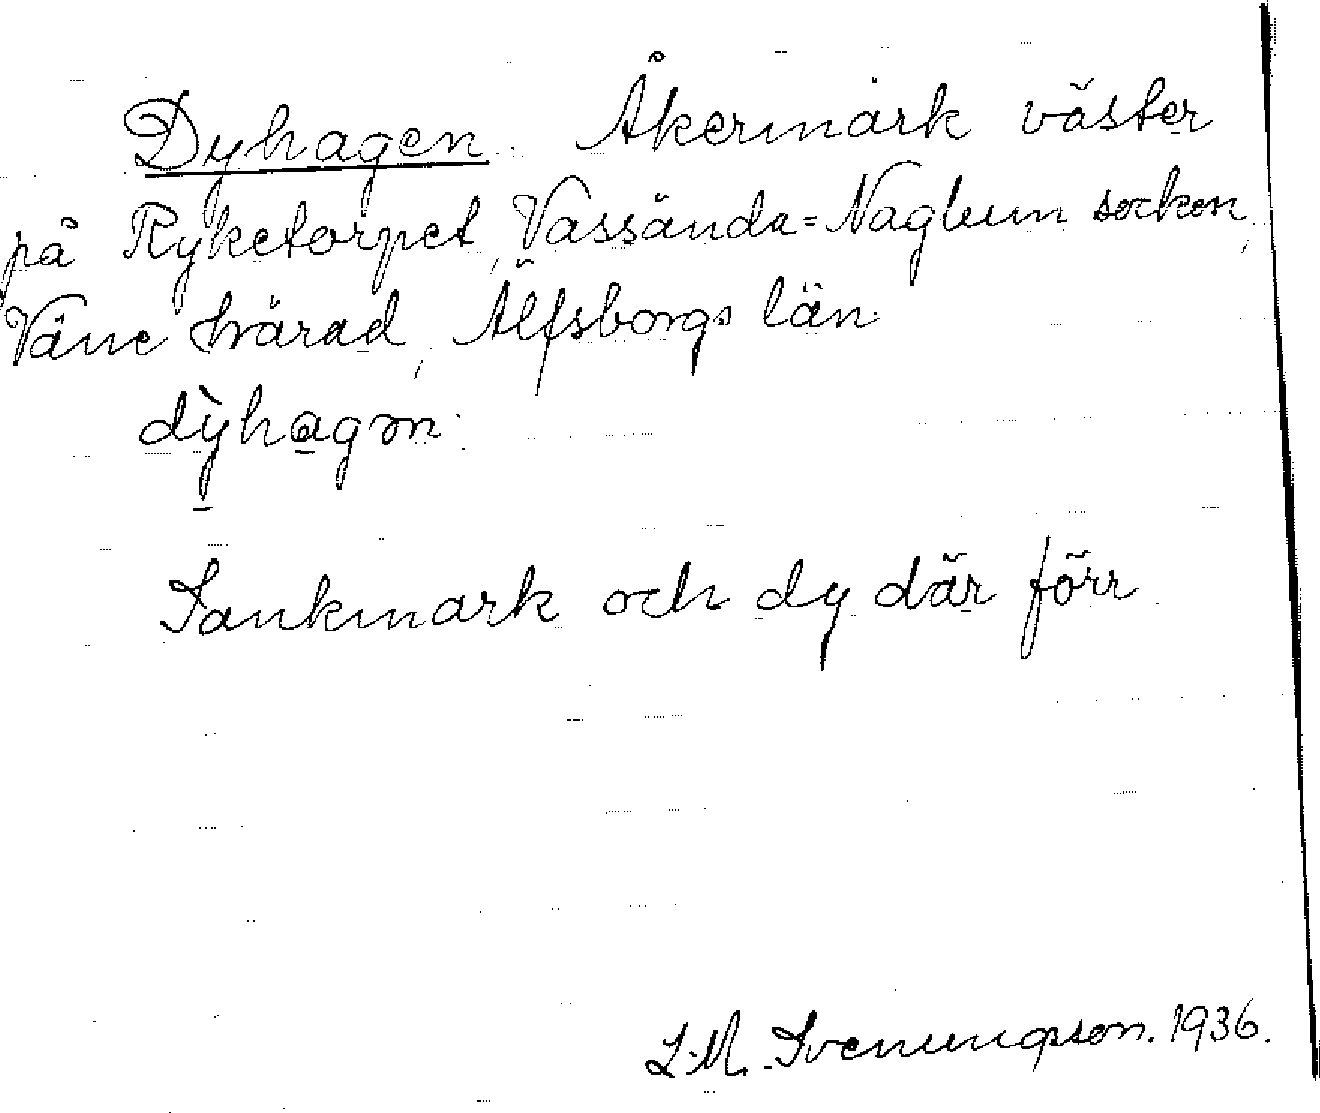 Dyhagen. Åkermark väster
på Ryketorpet, Vassända=Naglum socken,
Väne härad, Älfsborgs län.
dỳhagən.
Sankmark och dy där förr
L.M. Svenungsson. 1936.